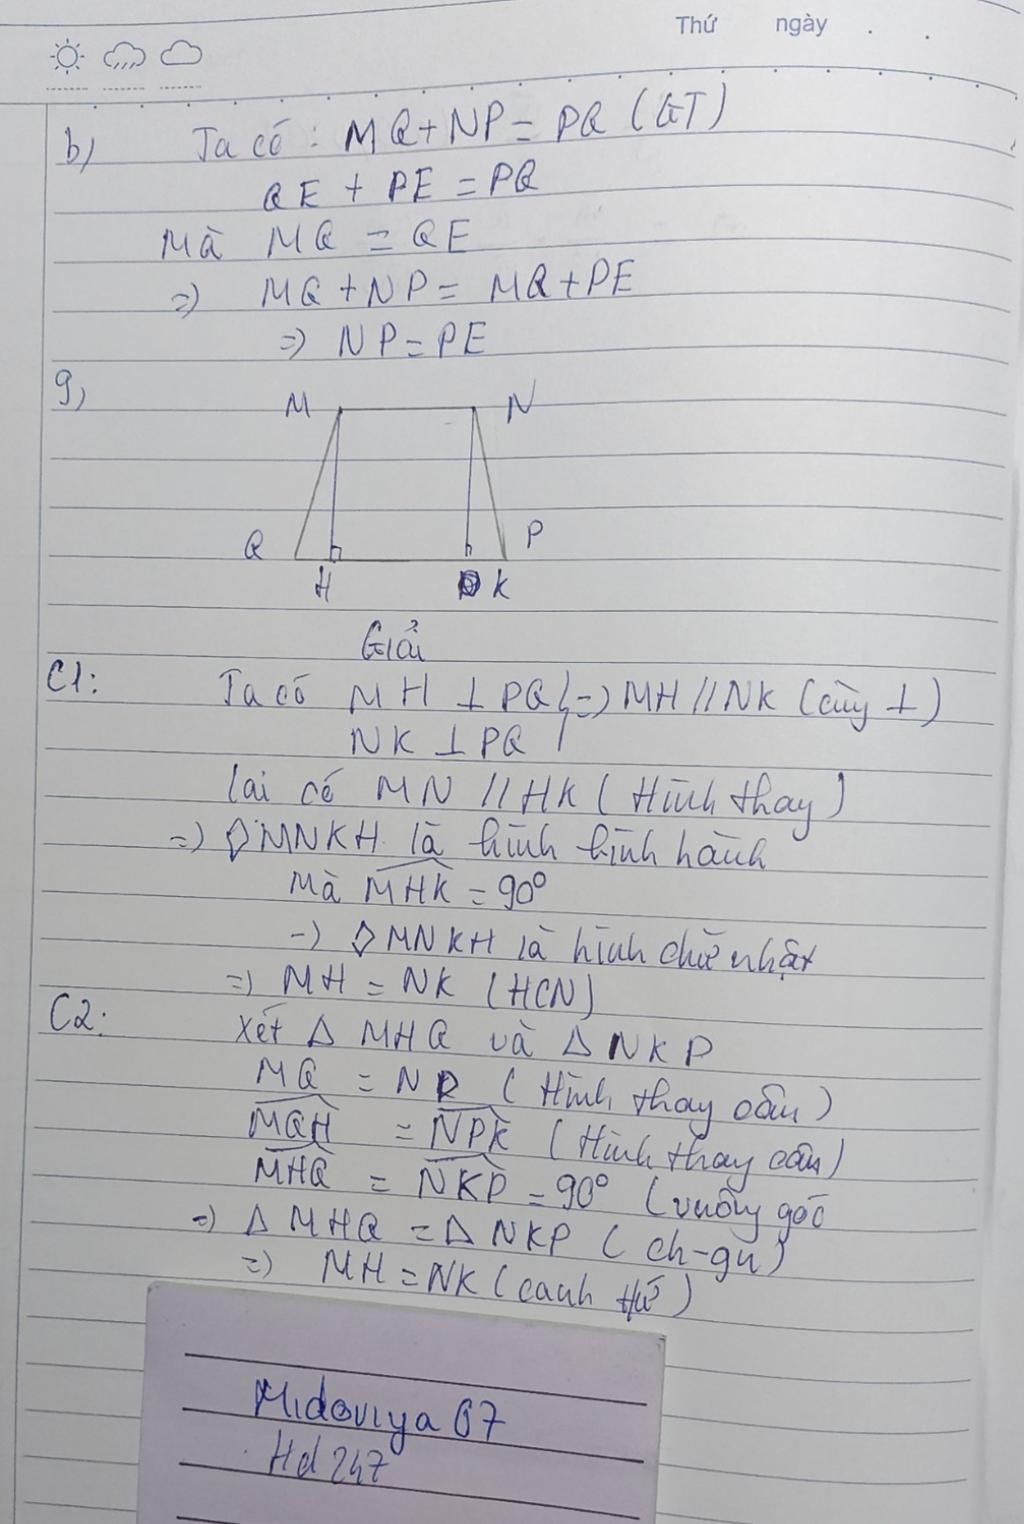 Thứ ngày . .
b) Ta có: MQ + NP = PQ (GT)
QE + PE = PQ
Mà MQ = QE
=> MQ + NP = MQ + PE
=> NP = PE
9)
M N
Q P
H K
Giải
C1: Ta có MH ⊥ PQ } => MH // NK (cùng ⊥)
NK ⊥ PQ
lại có MN // HK (Hình thay)
=> ◇MNKH là hình bình hành
Mà MHK = 90°
-> ◇MNKH là hình chữ nhật
=> MH = NK (HCN)
C2: xét △ MHQ và △ NKP
MQ = NP (Hình thay cân)
MQH = NPK (Hình thay cân)
MHQ = NKP = 90° (vuông góc
=> △ MHQ = △ NKP (ch-gn)
=> MH = NK (cạnh tứ)
Midoviya 67
Hd 247